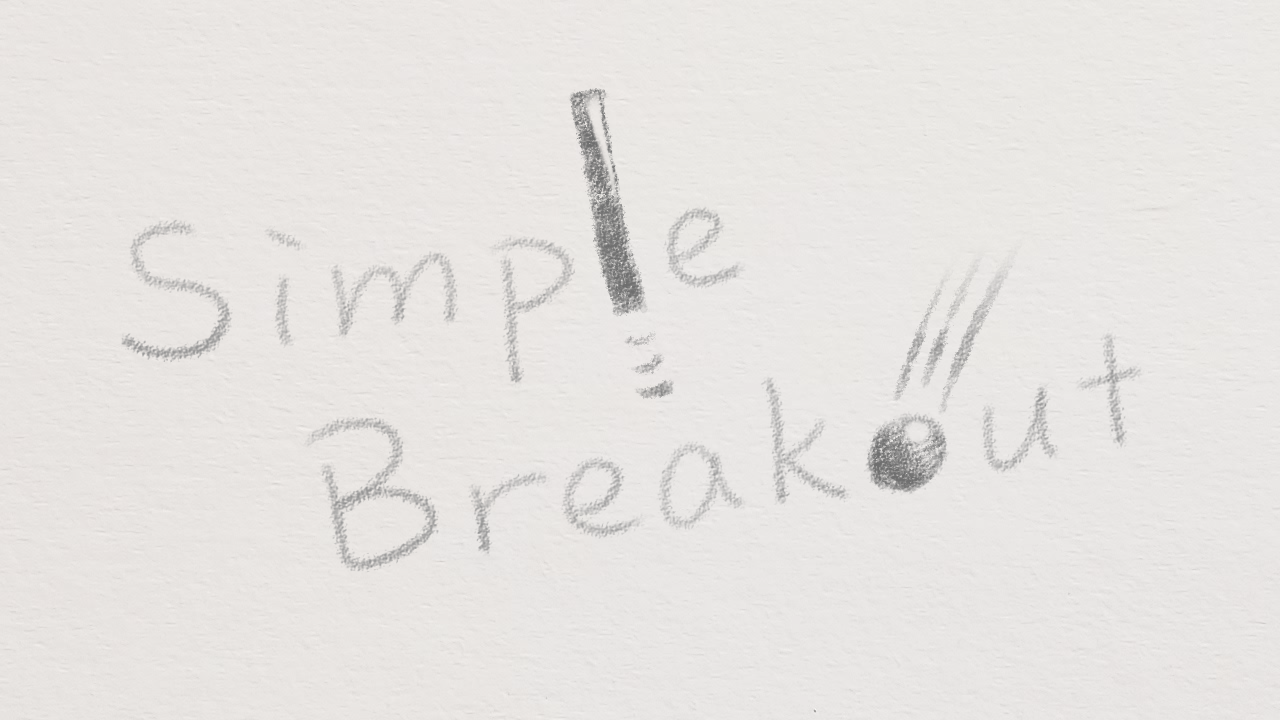 Simple
Breakout